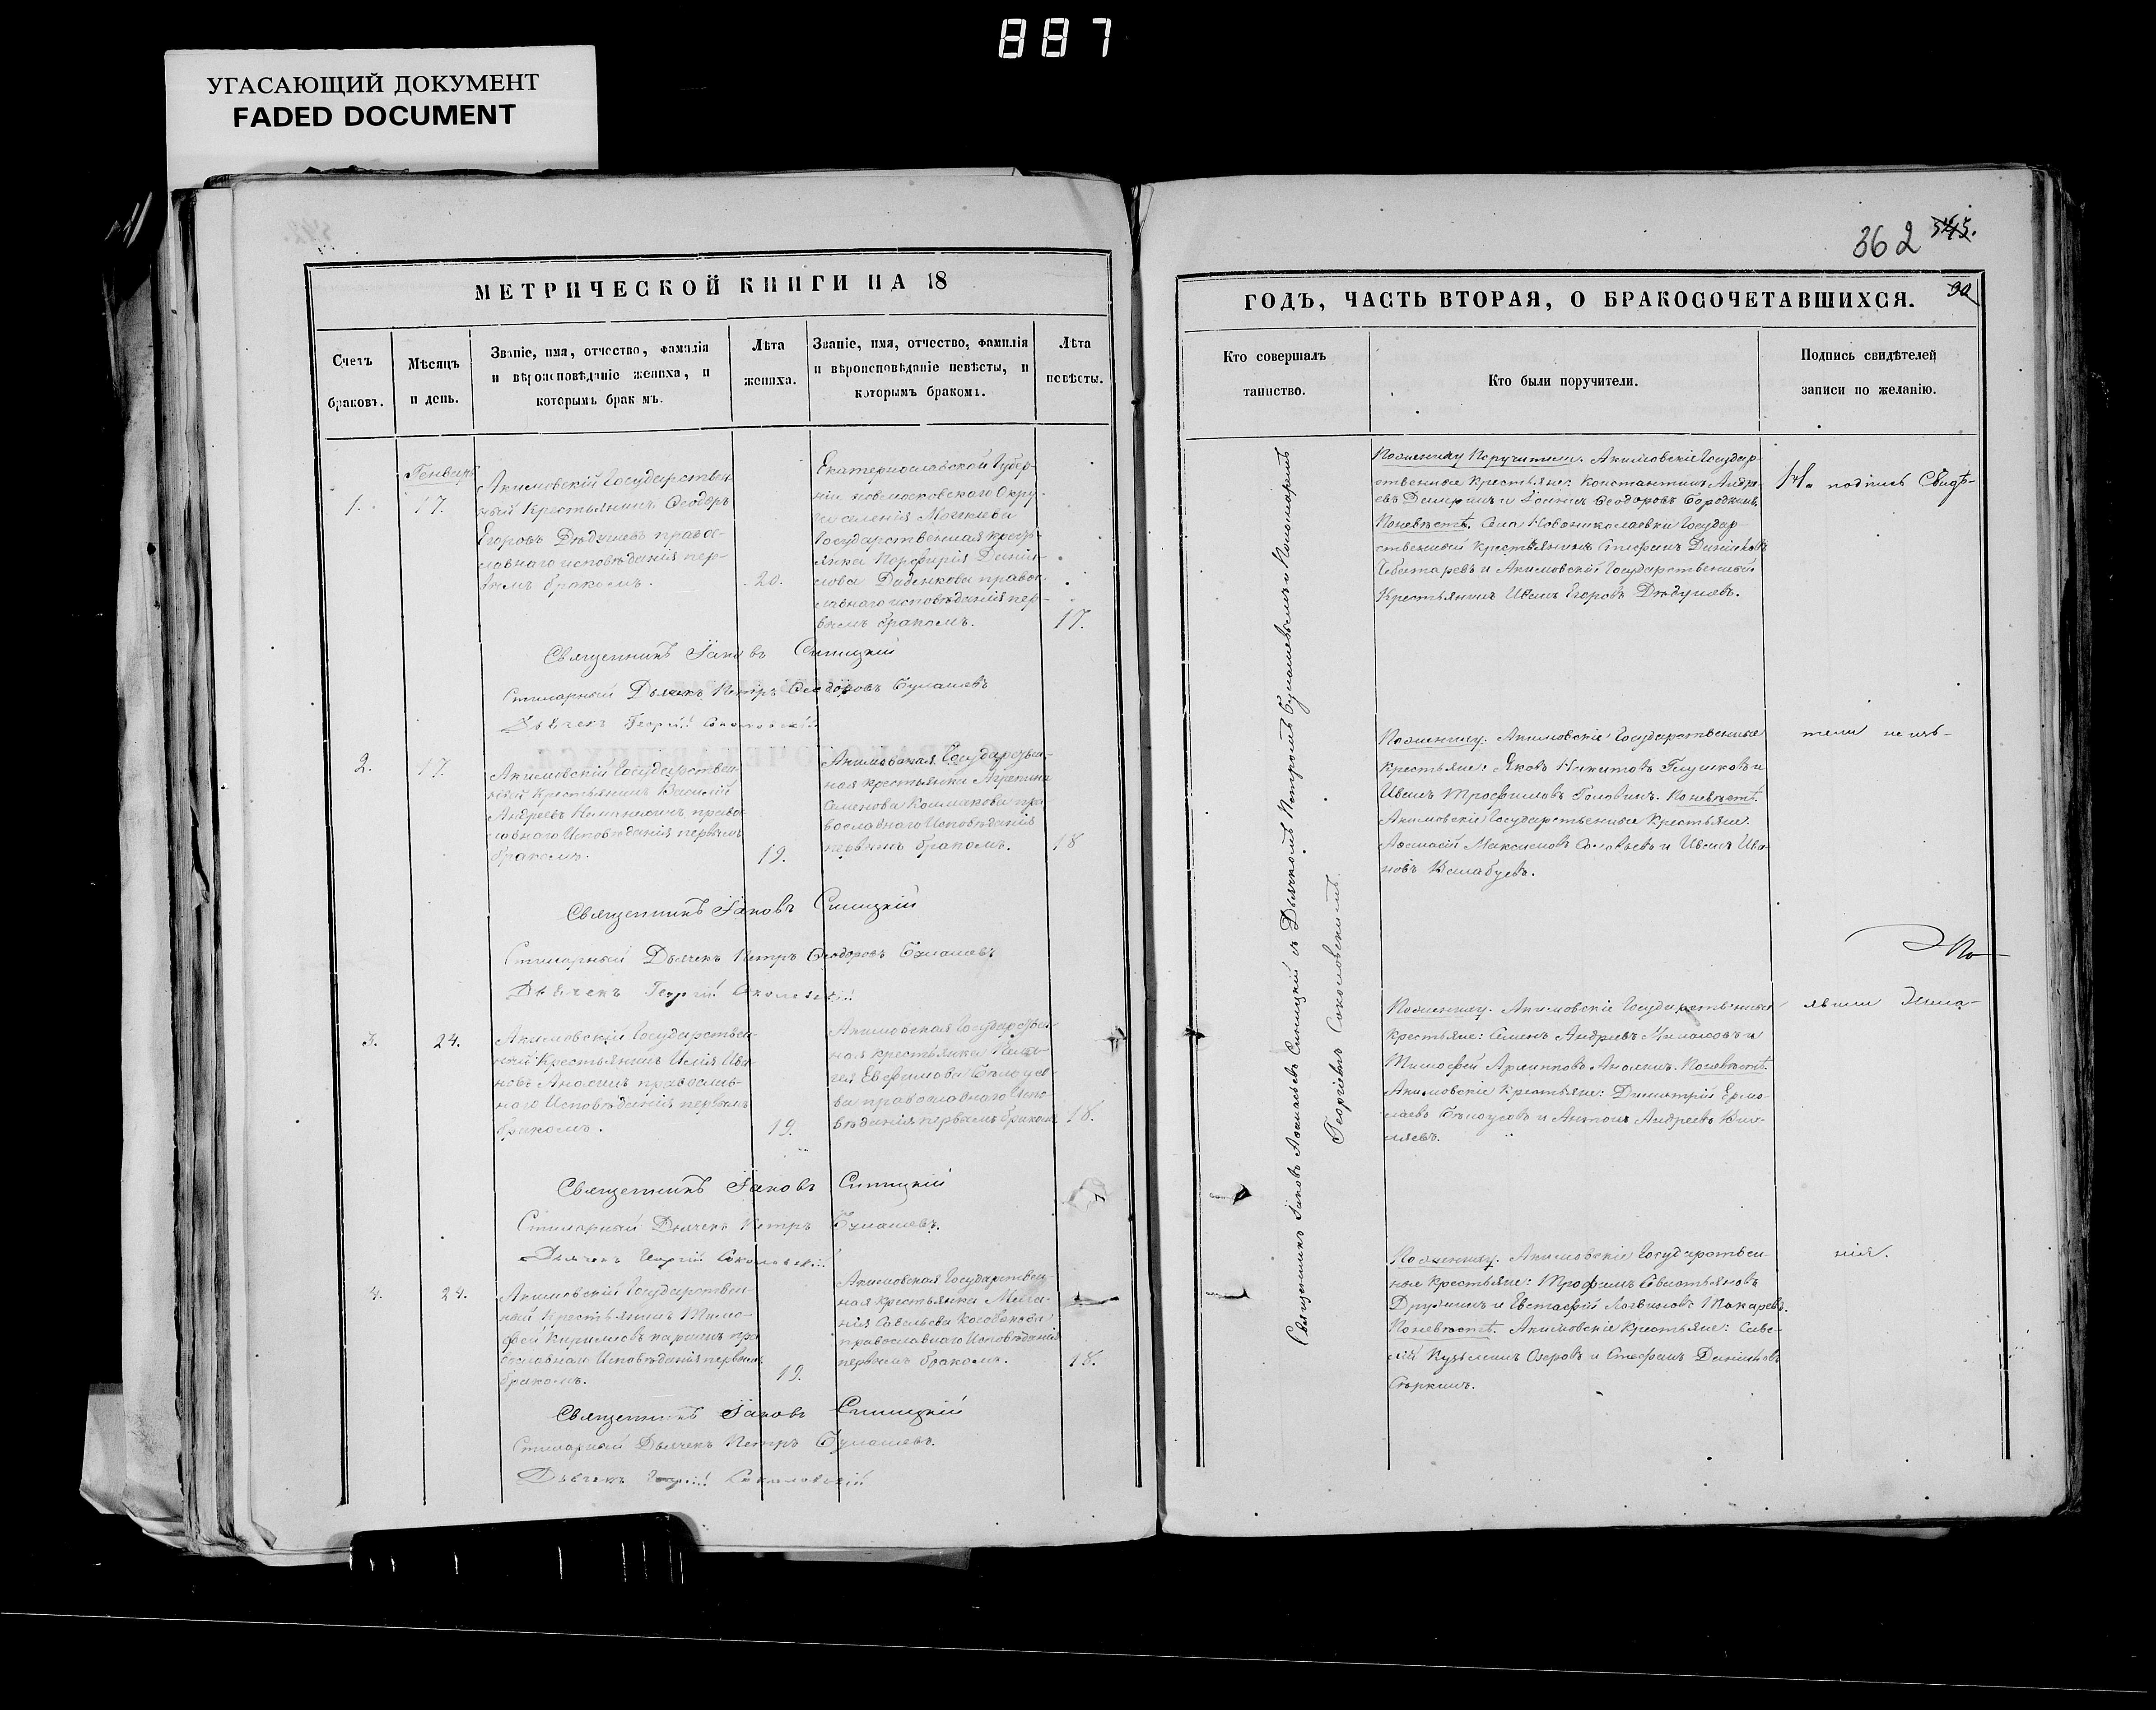 887
УГАСАЮЩИЙ ДОКУМЕНТ
FADED DOCUMENT
МЕТРИЧЕСКОЙ КНИГИ НА 18
Счетъ браковъ.
Мѣсяцъ и день.
Званіе, имя, отчество, фамилія
и вѣроисповѣданіе жениха, и
которымъ бракомъ.
Лѣта
жениха.
Званіе, имя, отчество, фамилія
и вѣроисповѣданіе невѣсты, и
которымъ бракомъ.
Лѣта
невѣсты.
1.
Генварь
17.
Акимовскій Государствен-
ный Крестьянинъ Ѳеодоръ
Егоровъ Дѣдушевъ право-
славнаго исповѣданія пер-
вымъ бракомъ.
20.
Екатеринославской Губер-
ніи Новомосковскаго Окру-
га селенія
Государственная кресть-
янка Порфирія Данiи-
лова Диденкова правос-
лавнаго исповѣданія пер-
вымъ бракомъ.
17.
Священникъ Іаковъ Синицкій
Стихарный Дьячекъ Петръ Ѳеодоровъ Булашевъ
Дьячекъ Георгій Соколовскій
2.
17.
Акимовскій Государствен-
ный Крестьянинъ Василій
Андреевъ право-
славнаго Исповѣданія первымъ
бракомъ.
19.
Акимовская Государствен-
ная крестьянка Агрипина
Семенова Колмакова пра-
вославнаго Исповѣданія
первымъ бракомъ.
18
Священникъ Іаковъ Синицкій
Стихарный Дьячекъ Петръ Ѳеодоровъ Булашевъ
Дьячекъ Георгій Соколовскій
3.
24.
Акимовскій Государствен-
ный Крестьянинъ Илія Ива-
новъ Анохинъ православ-
наго Исповѣданія первымъ
бракомъ.
19.
Акимовская Государствен-
ная крестьянка Пела-
гея Евфимова Бѣлоусо-
ва православнаго Испо-
вѣданія первымъ бракомъ
18.
Священникъ Іаковъ Синицкій
Стихарный Дьячекъ Петръ Булашевъ.
Дьячекъ Георгій Соколовскій
4.
24.
Акимовскій Государствен-
ный Крестьянинъ Тимо-
фей Кириловъ пра-
вославнаго Исповѣданія первымъ
бракомъ.
19.
Акимовская Государствен-
ная крестьянка Мела-
нія Савельева
православнаго Исповѣданія
первымъ бракомъ.
18.
Священникъ Іаковъ Синицкій
Стихарный Дьячекъ Петръ Булашевъ.
Дьячекъ Георгій Соколовскій
362 545.
ГОДЪ, ЧАСТЬ ВТОРАЯ, О БРАКОСОЧЕТАВШИХСЯ.
90
Кто совершалъ
таинство.
Кто были поручители.
Подпись свидѣтелей
записи по желанію.
Священникъ Іаковъ Аѳанасьевъ Синицкій съ Дьячкомъ Петромъ Булашевымъ и Пономаремъ
Георгіемъ Соколовскимъ.
По жениху Поручители. Акимовскіе Государ-
ственные Крестьяне: Константинъ Андре-
евъ и Ѳеодоровъ Бородкинъ.
По невѣстѣ. Села Новониколаевки Государ-
ственный Крестьянинъ Стефанъ Даниловъ
Чеботаревъ и Акимовскій Государственный
Крестьянинъ Иванъ Егоровъ Дѣдушевъ.
На подпись Свидѣ-
По жениху. Акимовскіе Государственные
Крестьяне: Яковъ Никитовъ Глушковъ и
Иванъ Трофимовъ Головинъ. По невѣстѣ.
Акимовскіе Государственные Крестьяне:
Аѳанасій Максимовъ Соловьевъ и Иванъ Ива-
новъ
тели неизъ-
По жениху. Акимовскіе Государственные
Крестьяне: Семенъ Андреевъ и
Тимофей Анохинъ. По невѣстѣ.
Акимовскіе Крестьяне: Димитрій Ермо-
лаевъ Бѣлоусовъ и Антонъ Андреевъ
явили Жела-
По жениху. Акимовскіе Государствен-
ные Крестьяне: Трофимъ Севастьяновъ
Дружинъ и Евстафій Логвиновъ Токаревъ.
По невѣстѣ. Акимовскіе Крестьяне: Саве-
лій Кузьминъ Озеровъ и Стефанъ Даниловъ
нія.